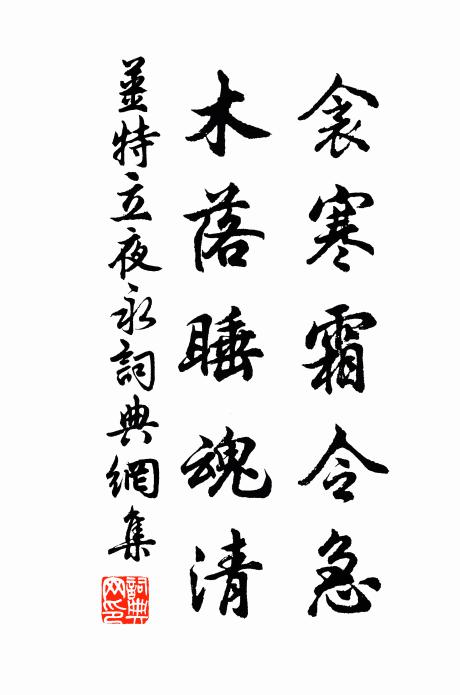 衾寒霜令急
木落睡魂清
姜特立夜永詞典網集
詞典網印